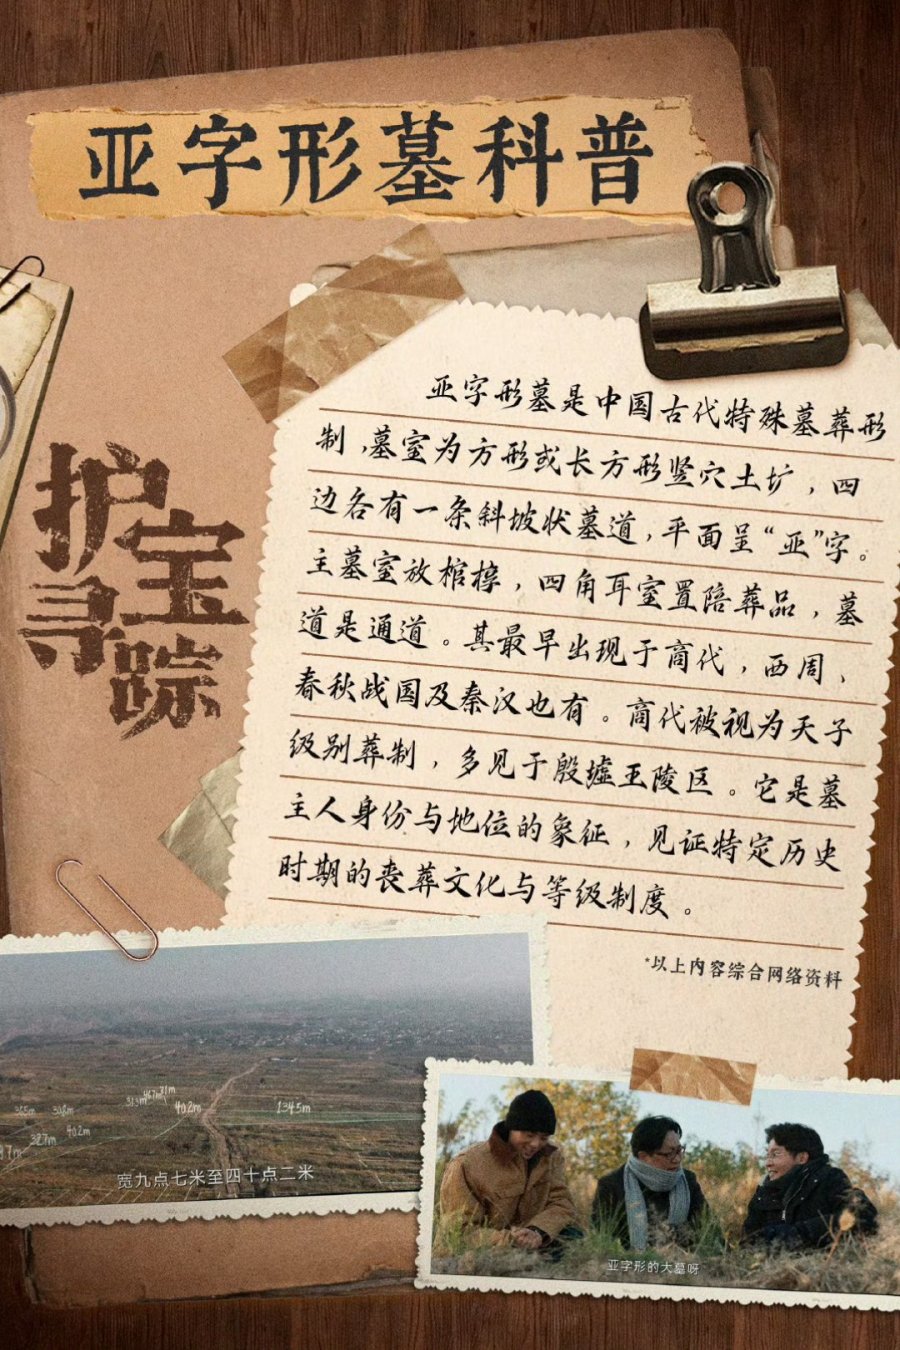 亚字形墓科普
护宝
寻踪
亚字形墓是中国古代特殊墓葬形
制，墓室为方形或长方形竖穴土圹，四
边各有一条斜坡状墓道，平面呈“亚”字。
主墓室放棺椁，四角耳室置陪葬品，墓
道是通道。其最早出现于商代，西周、
春秋战国及秦汉也有。商代被视为天子
级别葬制，多见于殷墟王陵区。它是墓
主人身份与地位的象征，见证特定历史
时期的丧葬文化与等级制度。
*以上内容综合网络资料
40.2m
134.5m
32.7m
40.2m
宽九点七米至四十点二米
亚字形的大墓呀